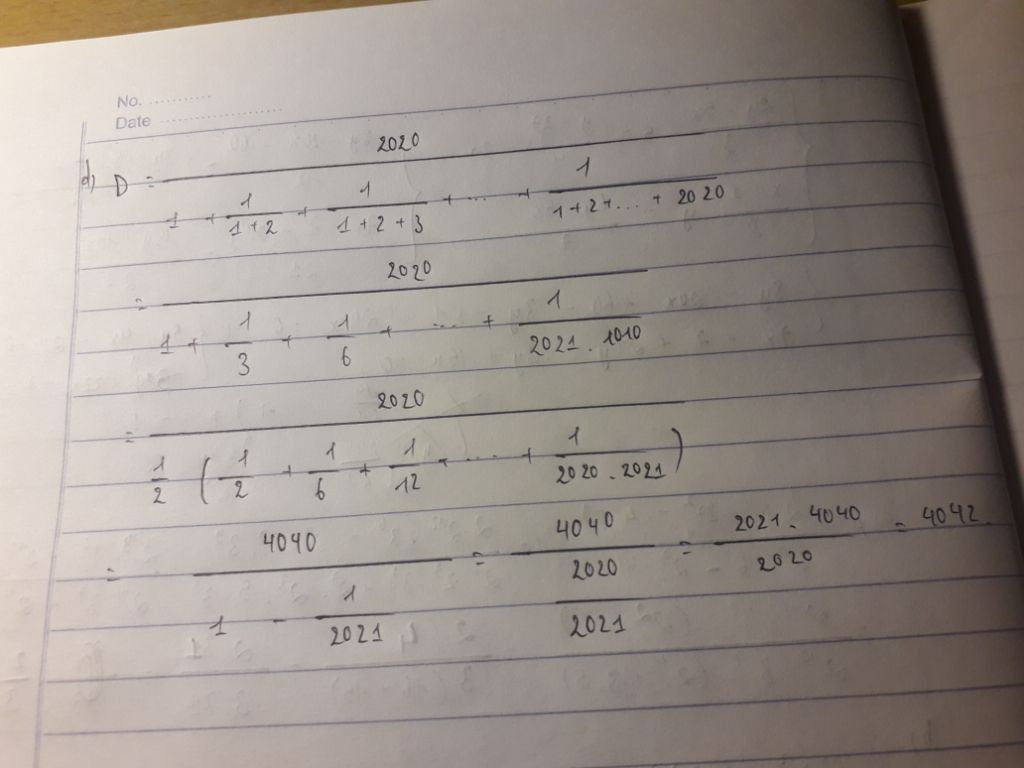 No. ...........
Date ......................
d) D = 2020 / (1 + 1/(1+2) + 1/(1+2+3) + ... + 1/(1+2+...+2020))
= 2020 / (1 + 1/3 + 1/6 + ... + 1/(2021 . 1010))
= 2020 / (1/2 (1/2 + 1/6 + 1/12 + ... + 1/(2020 . 2021)))
= 4040 / (1 - 1/2021) = 4040 / (2020/2021) = (2021 . 4040)/2020 = 4042.